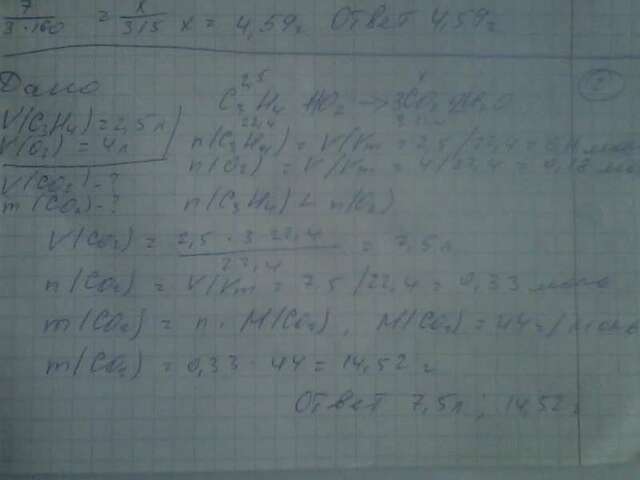 7 / 3·160 = x / 315 x = 4,59г Ответ 4,59г
②
Дано
V(C3H4)=2,5л
V(O2)=4л
V(CO2)-?
m(CO2)-?
C3H4 + 4O2 → 3CO2 + 2H2O
n(C3H4) = V/Vm = 2,5/22,4 =
n(O2) = V/Vm = 4/22,4 = 0,18
n(C3H4) < n(O2)
V(CO2) = 2,5 · 3 · 22,4 / 22,4 = 7,5л
n(CO2) = V/Vm = 7,5/22,4 = 0,33 моль
m(CO2) = n · M(CO2), M(CO2) = 44г/моль
m(CO2) = 0,33 · 44 = 14,52г
Ответ 7,5л; 14,52г